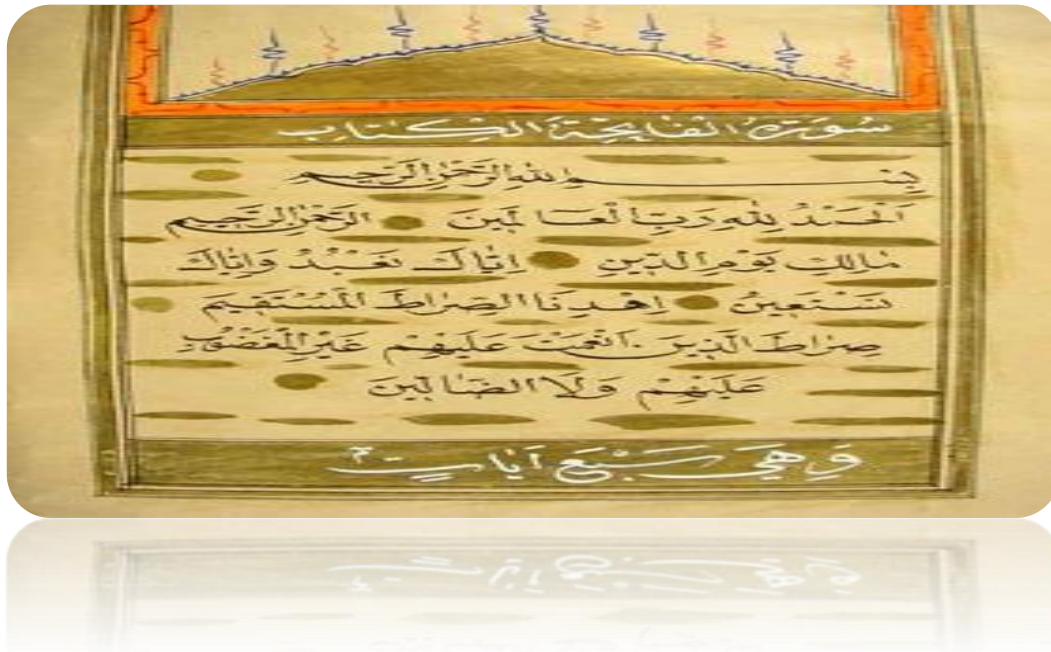 سُورَةُ الْفَاتِحَةِ الْكِتَابِ
بِسْمِ اللهِ الرَّحْمٰنِ الرَّحِيمِ
اَلْحَمْدُ لِلّٰهِ رَبِّ الْعَالَمِينَ الرَّحْمٰنِ الرَّحِيمِ
مَالِكِ يَوْمِ الدِّينِ اِيَّاكَ نَعْبُدُ وَاِيَّاكَ
نَسْتَعِينُ اِهْدِنَا الصِّرَاطَ الْمُسْتَقِيمَ
صِرَاطَ الَّذِينَ اَنْعَمْتَ عَلَيْهِمْ غَيْرِ الْمَغْضُوبِ
عَلَيْهِمْ وَلَا الضَّالِّينَ
وَهِيَ سَبْعُ آيَاتٍ